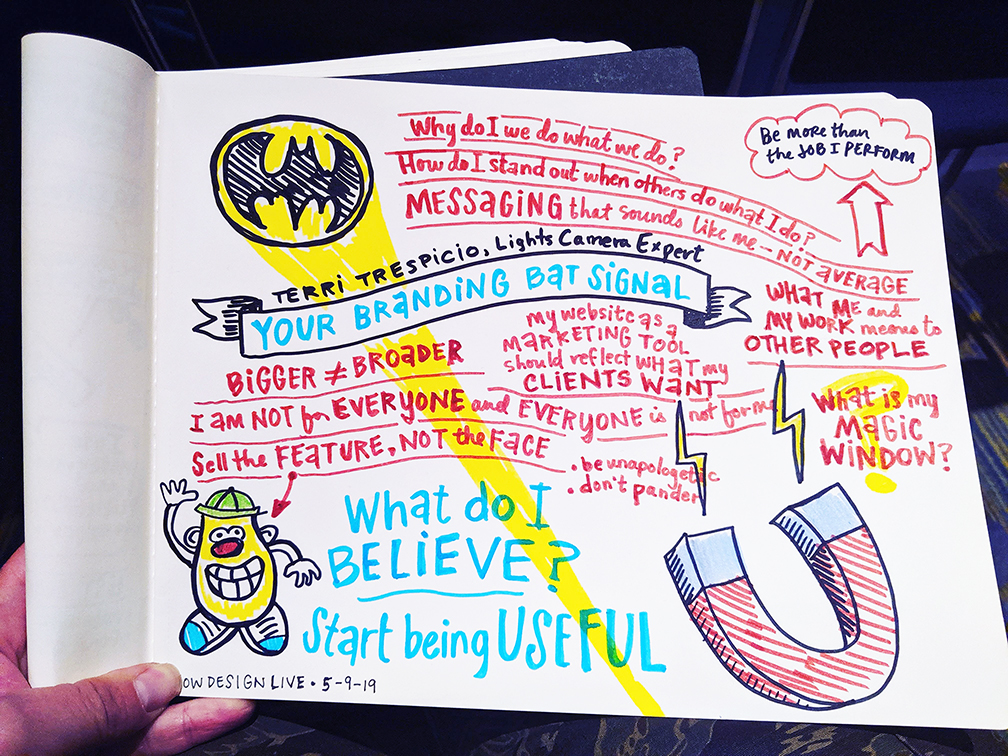 Why do I we do what we do?
How do I stand out when others do what I do?
MESSAGING that sounds like me — NOT AVERAGE
Be more than
the JOB I PERFORM
TERRI TRESPICIO, Lights Camera Expert
YOUR BRANDING BAT SIGNAL
WHAT ME and
MY WORK means to
OTHER PEOPLE
my website as a
MARKETING TOOL
should reflect WHAT my
CLIENTS WANT
BIGGER ≠ BROADER
I am NOT for EVERYONE and EVERYONE is not for me
Sell the FEATURE, NOT the FACE
• be unapologetic
• don't pander
What is my
MAGIC
WINDOW?
What do I
BELIEVE?
Start being USEFUL
OW DESIGN LIVE • 5-9-19